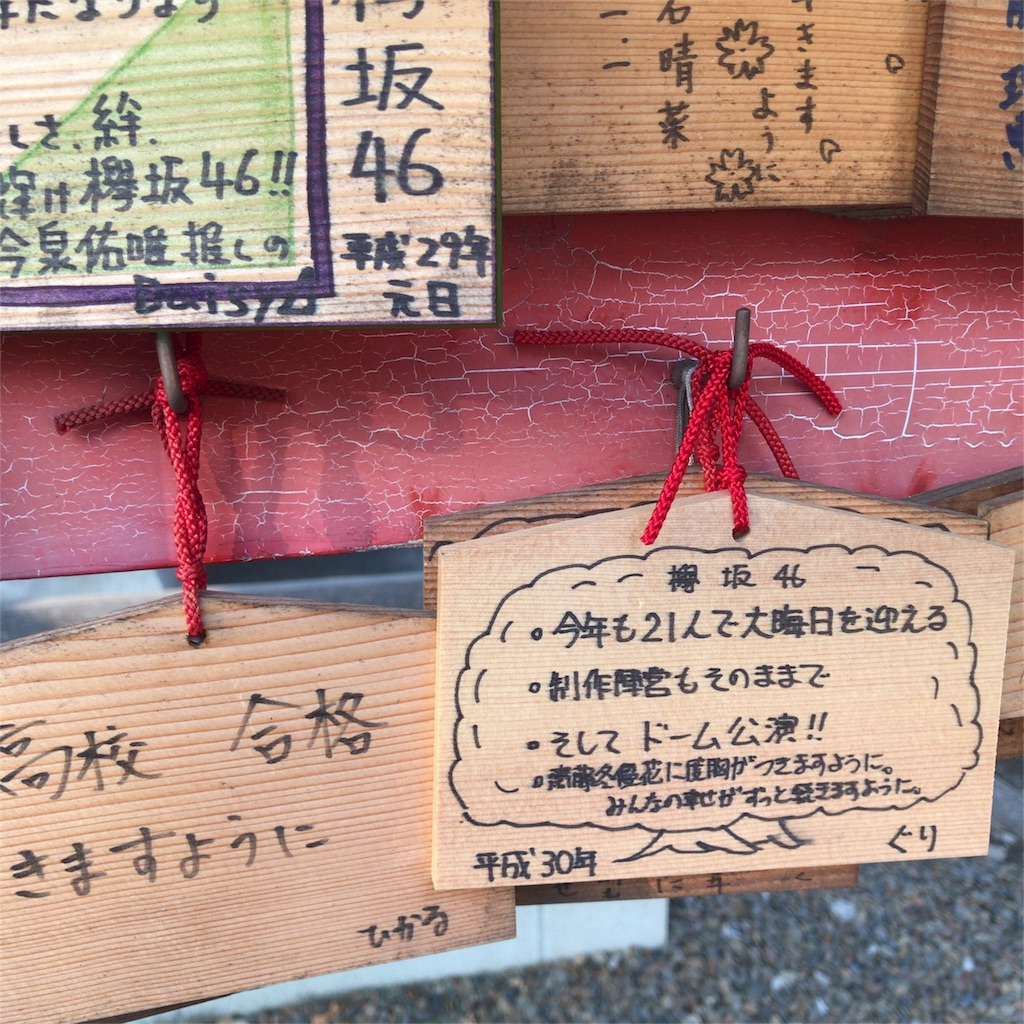 しさ、絆、
欅坂46!!
今泉佑唯推しの
Daisy
坂
46
平成29年
元日
晴菜
きます
ように
高校 合格
きますように
ひかる
欅坂46
。今年も21人で大晦日を迎える
。制作陣営もそのままで
。そして ドーム公演!!
。齋藤冬優花に度胸がつきますように。
みんなの幸せがずっと続きますように。
平成30年
ぐり